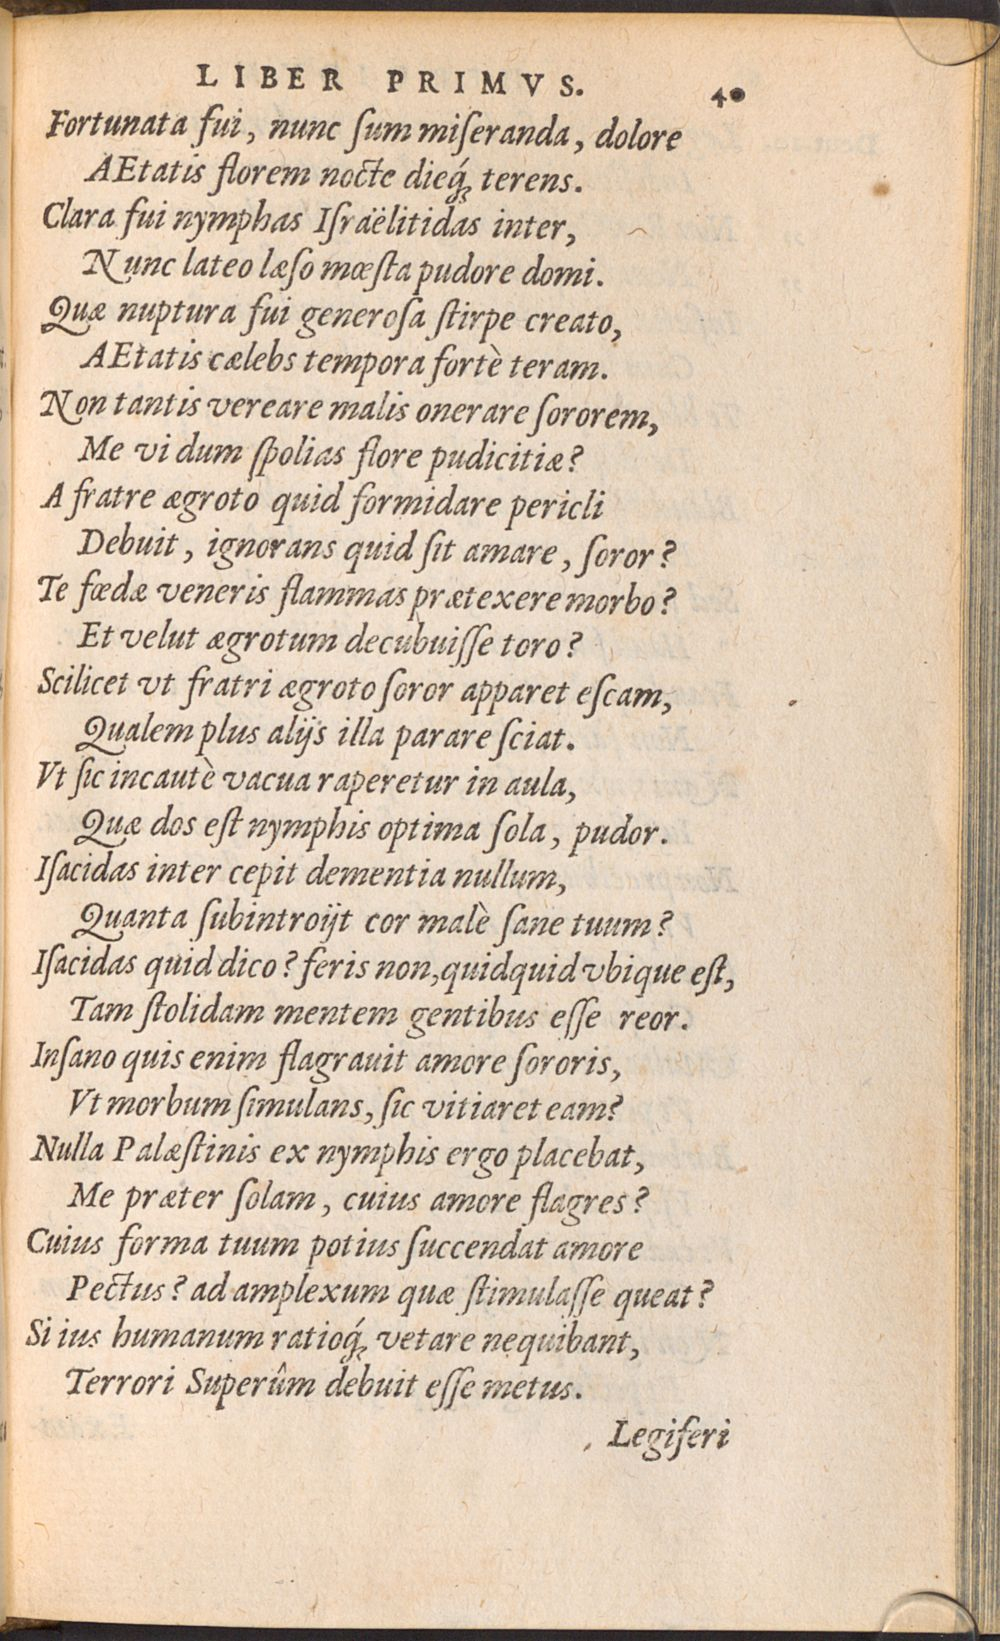 LIBER PRIMVS. 40
Fortunata fui, nunc ſum miſeranda, dolore
AEtatis florem nocte dieq́ꝫ terens.
Clara fui nymphas Iſraëlitidas inter,
Nunc lateo læſo mœſta pudore domi.
Quæ nuptura fui generoſa ſtirpe creato,
AEtatis cælebs tempora fortè teram.
Non tantis vereare malis onerare ſororem,
Me vi dum ſpolias flore pudicitiæ?
A fratre ægroto quid formidare pericli
Debuit, ignorans quid ſit amare, ſoror?
Te fœdæ veneris flammas prætexere morbo?
Et velut ægrotum decubuiſſe toro?
Scilicet vt fratri ægroto ſoror apparet eſcam,
Qualem plus alijs illa parare ſciat.
Vt ſic incautè vacua raperetur in aula,
Quæ dos eſt nymphis optima ſola, pudor.
Iſacidas inter cepit dementia nullum,
Quanta ſubintroijt cor malè ſane tuum?
Iſacidas quid dico? feris non, quidquid vbique eſt,
Tam ſtolidam mentem gentibus eſſe reor.
Inſano quis enim flagrauit amore ſororis,
Vt morbum ſimulans, ſic vitiaret eam?
Nulla Palæſtinis ex nymphis ergo placebat,
Me præter ſolam, cuius amore flagres?
Cuius forma tuum potius ſuccendat amore
Pectus? ad amplexum quæ ſtimulaſſe queat?
Si ius humanum ratioq́ꝫ vetare nequibant,
Terrori Superûm debuit eſſe metus.
Legiferi